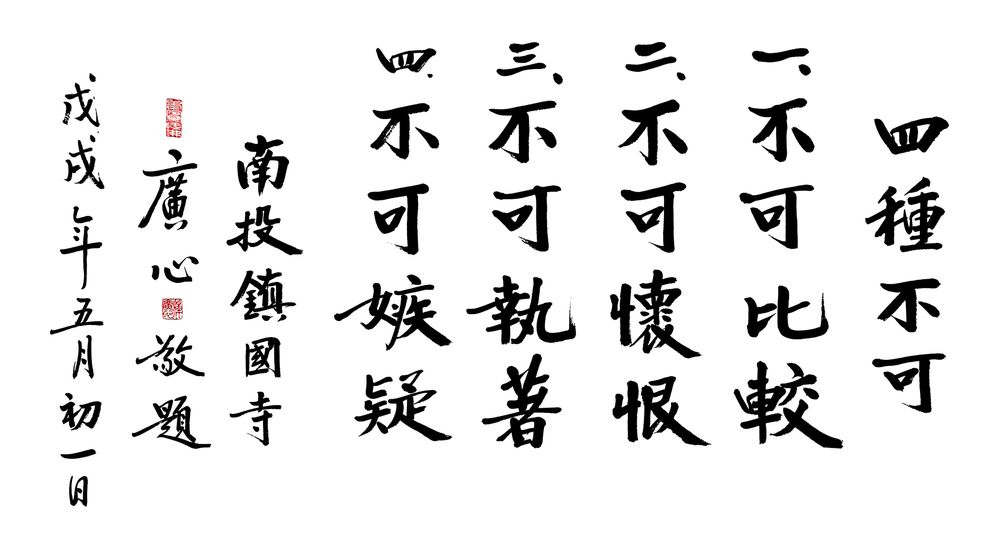 四種不可
一、不可比較
二、不可懷恨
三、不可執著
四、不可嫉疑
南投鎮國寺
廣心敬題
戊戌年五月初一日